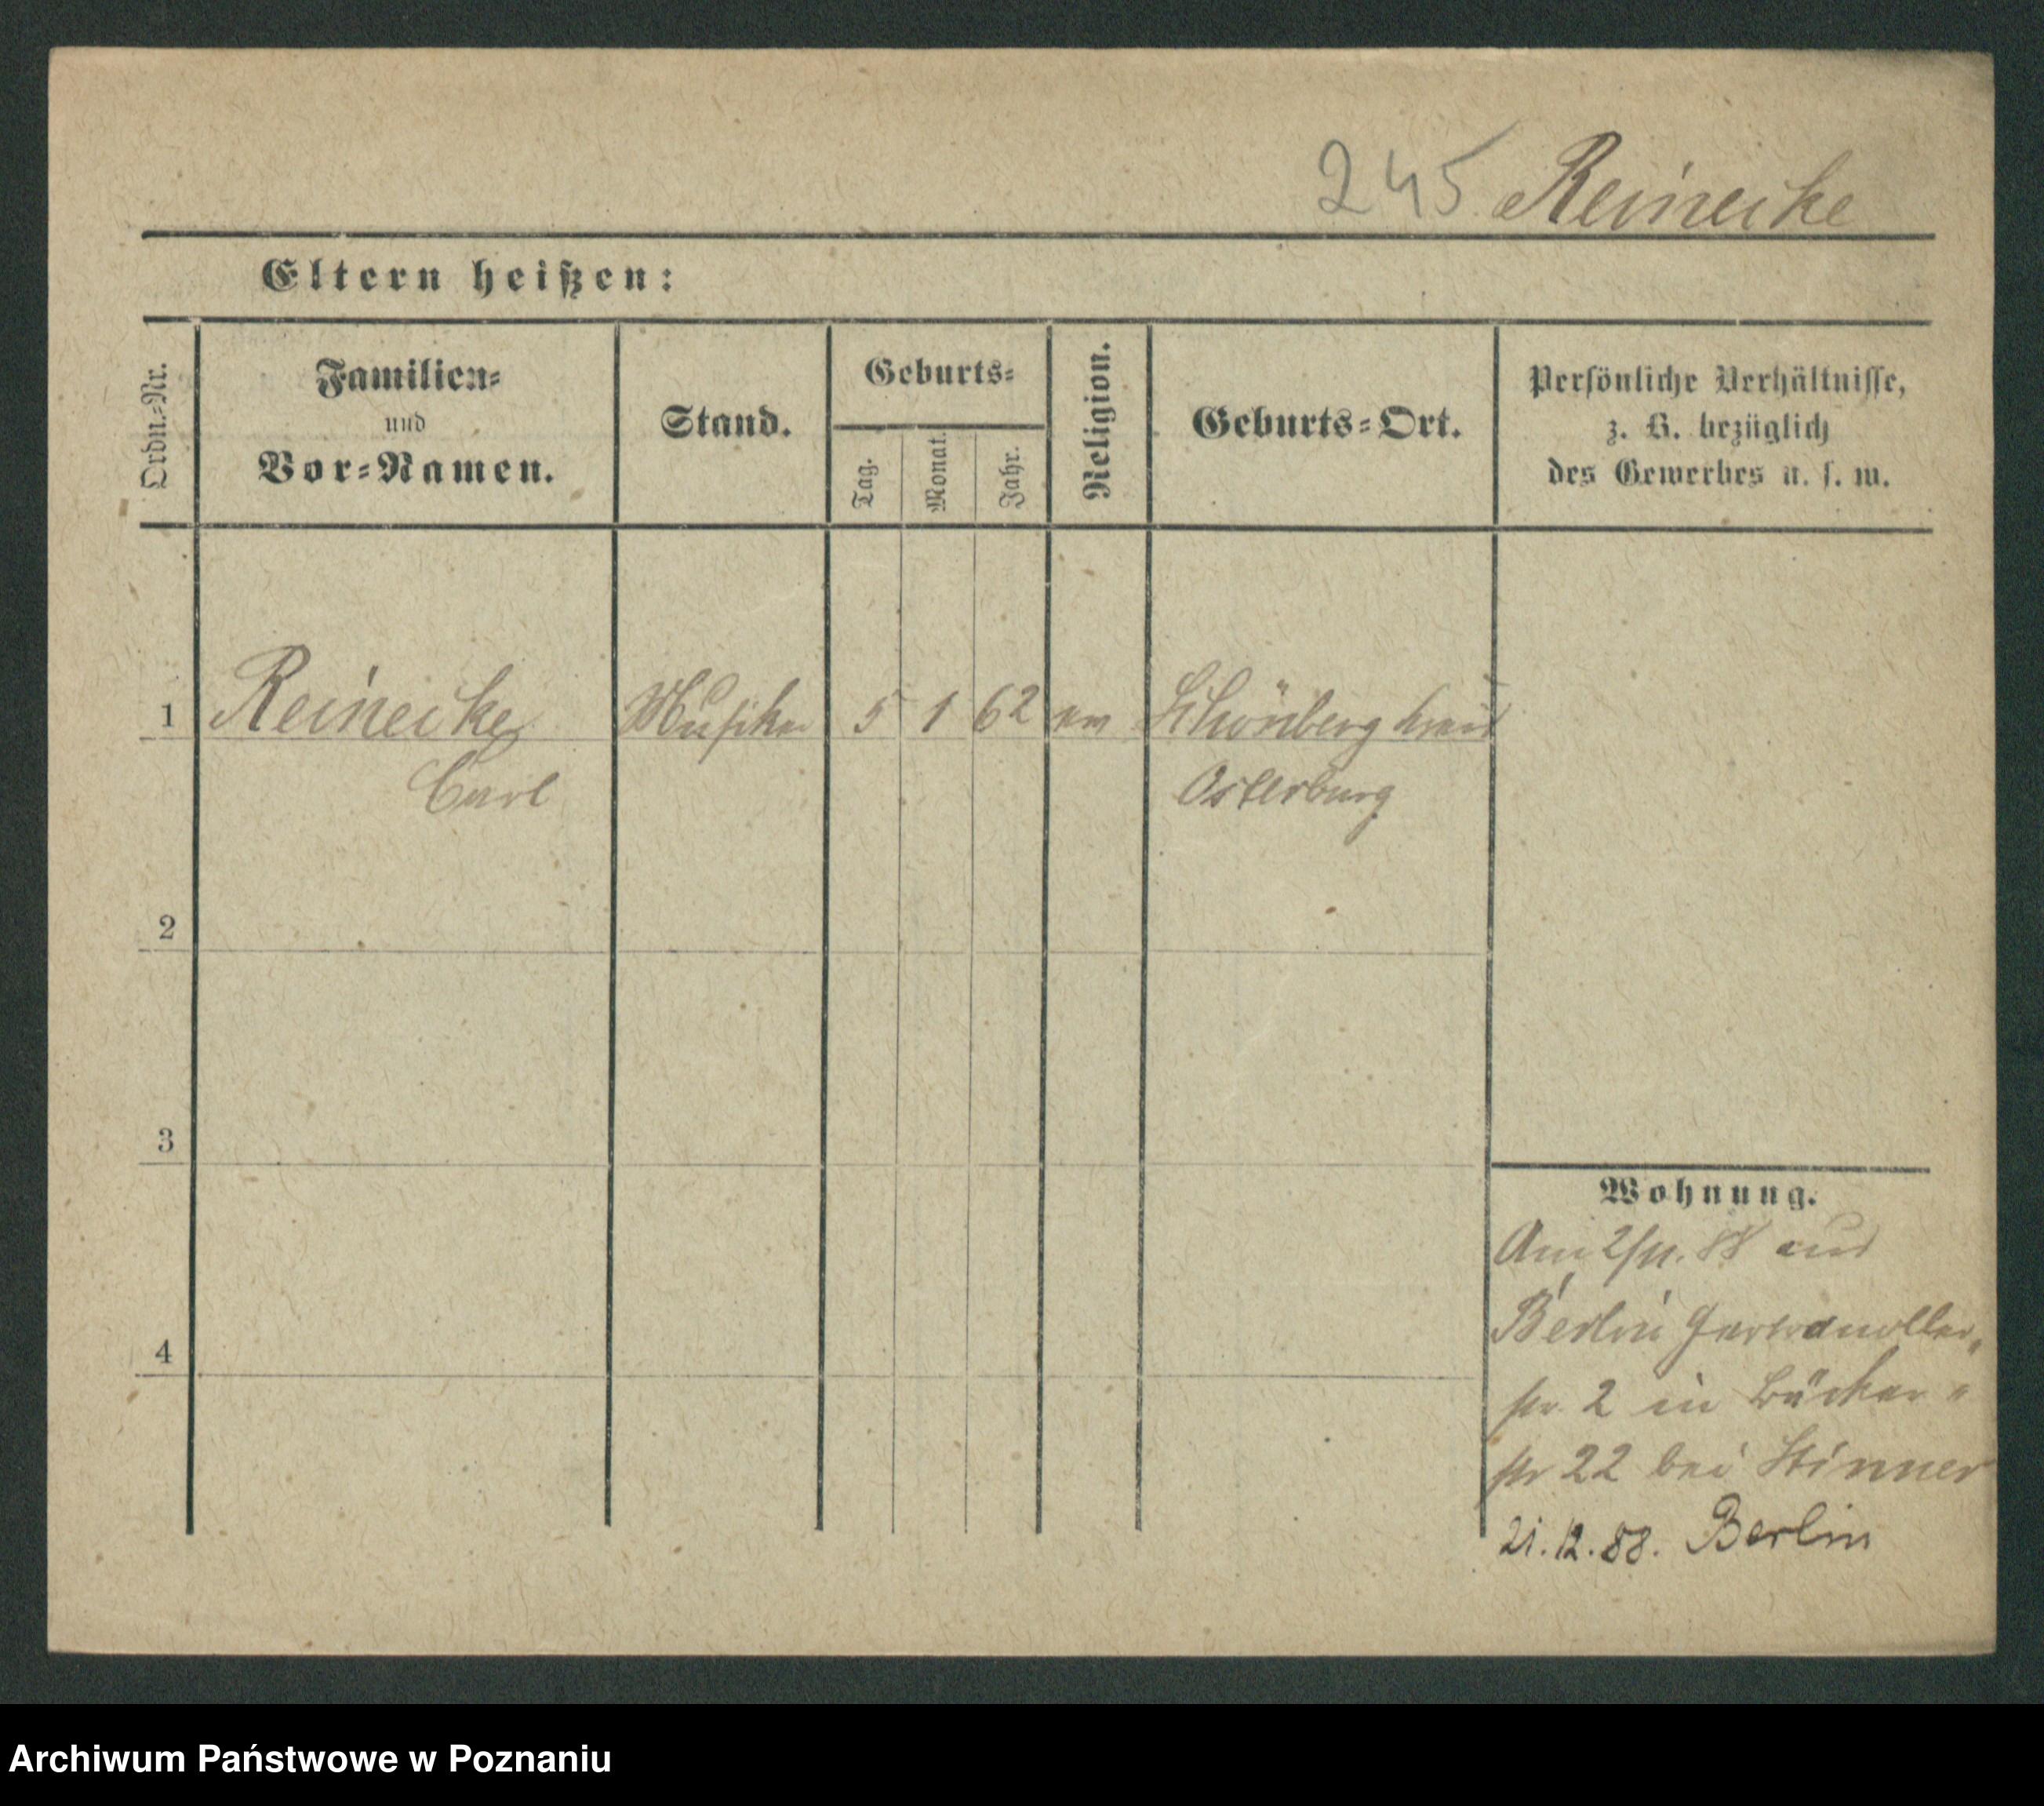 245. Reinecke
Eltern heißen:
Ordn.-Nr.
Familien-
und
Vor-Namen.
Stand.
Geburts-
Tag.
Monat.
Jahr.
Religion.
Geburts-Ort.
Persönliche Verhältnisse,
z. B. bezüglich
des Gewerbes u. s. w.
1 Reinecke Musiker 5 1 62 ev Schönberg Kreis
Carl Osterburg
2
3
4
Wohnung.
Am 2/11. 88 aus
Berlin
str. 2 in Bäcker-
str 22 bei Stinner
21.12.88. Berlin
Archiwum Państwowe w Poznaniu